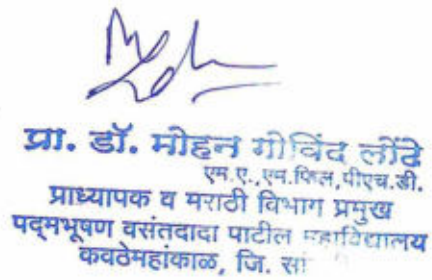 प्रा. डॉ. मोहन गोविंद लोंढे
एम.ए.,एम.फिल,पीएच.डी.
प्राध्यापक व मराठी विभाग प्रमुख
पद्मभूषण वसंतदादा पाटील महाविद्यालय
कवठेमहांकाळ, जि. सां